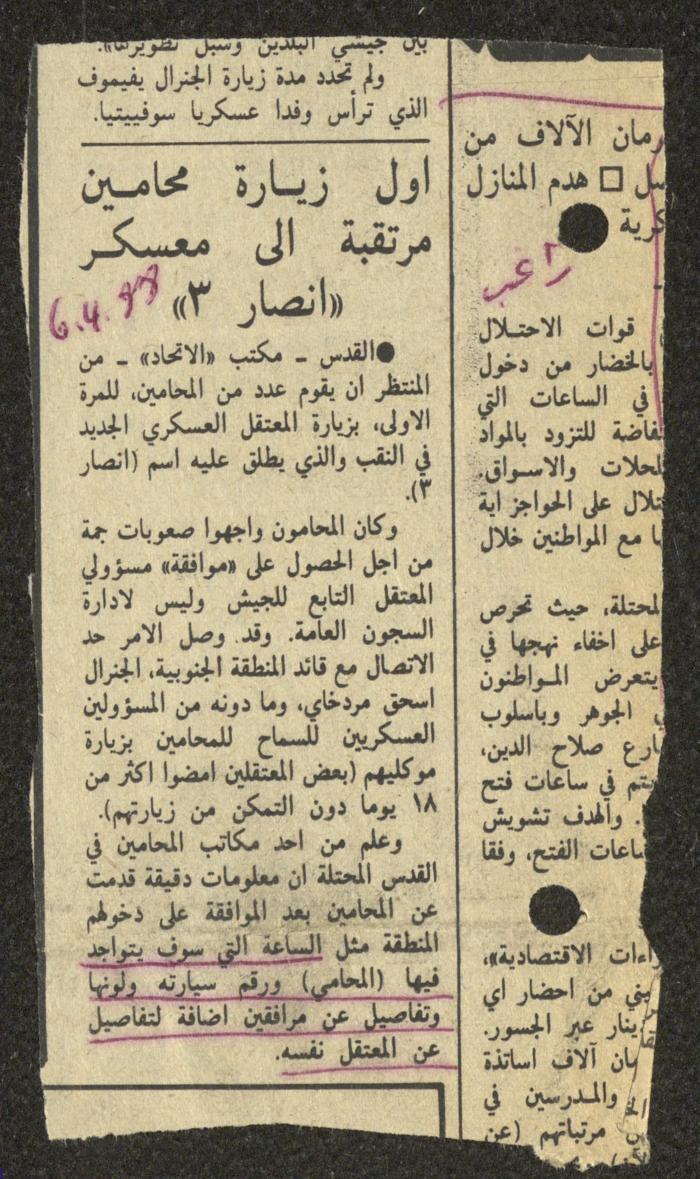 بين جيشي البلدين وسبل تطويرها».
ولم تحدد مدة زيارة الجنرال يفيموف
الذي ترأس وفدا عسكريا سوفييتيا.
اول زيــارة محامـين
مرتقبة الى معسكـر
«انصار ٣»
6.4.88
●القدس ـ مكتب «الاتحاد» ـ من
المنتظر ان يقوم عدد من المحامين، للمرة
الاولى، بزيارة المعتقل العسكري الجديد
في النقب والذي يطلق عليه اسم (انصار
٣).
وكان المحامون واجهوا صعوبات جمة
من اجل الحصول على «موافقة» مسؤولي
المعتقل التابع للجيش وليس لادارة
السجون العامة. وقد وصل الامر حد
الاتصال مع قائد المنطقة الجنوبية، الجنرال
اسحق مردخاي، وما دونه من المسؤولين
العسكريين للسماح للمحامين بزيارة
موكليهم (بعض المعتقلين امضوا اكثر من
١٨ يوما دون التمكن من زيارتهم).
وعلم من احد مكاتب المحامين في
القدس المحتلة ان معلومات دقيقة قدمت
عن المحامين بعد الموافقة على دخولهم
المنطقة مثل الساعة التي سوف يتواجد
فيها (المحامي) ورقم سيارته ولونها
وتفاصيل عن مرافقين اضافة لتفاصيل
عن المعتقل نفسه.
رمان الآلاف من
سل □ هدم المنازل
كرية
قوات الاحتـلال
بالخضار من دخول
في الساعات التي
تفاضة للتزود بالمواد
لمحلات والاسـواق.
تلال على الحواجز اية
ا مع المواطنين خلال
لمحتلة، حيث تحرص
على اخفاء نهجها في
يتعرض المـواطنون
ي الجوهر وباسلوب
ارع صلاح الدين،
يتم في ساعات فتح
. والهدف تشويش
اعات الفتح، وفقا
راءات الاقتصادية»،
بني من احضار اي
دينار عبر الجسور.
مان آلاف اساتذة
والمـدرسين في
مرتباتهم (عن